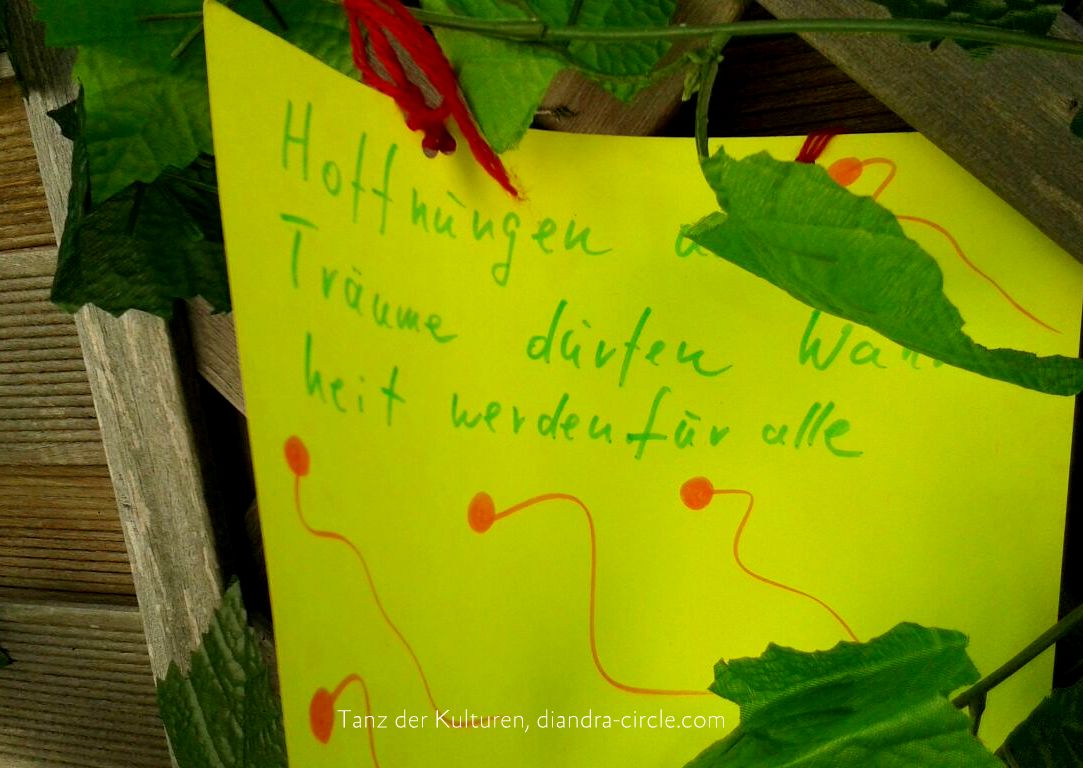 Hoffnungen
Träume dürfen Wah
heit werden für alle
Tanz der Kulturen, diandra-circle.com